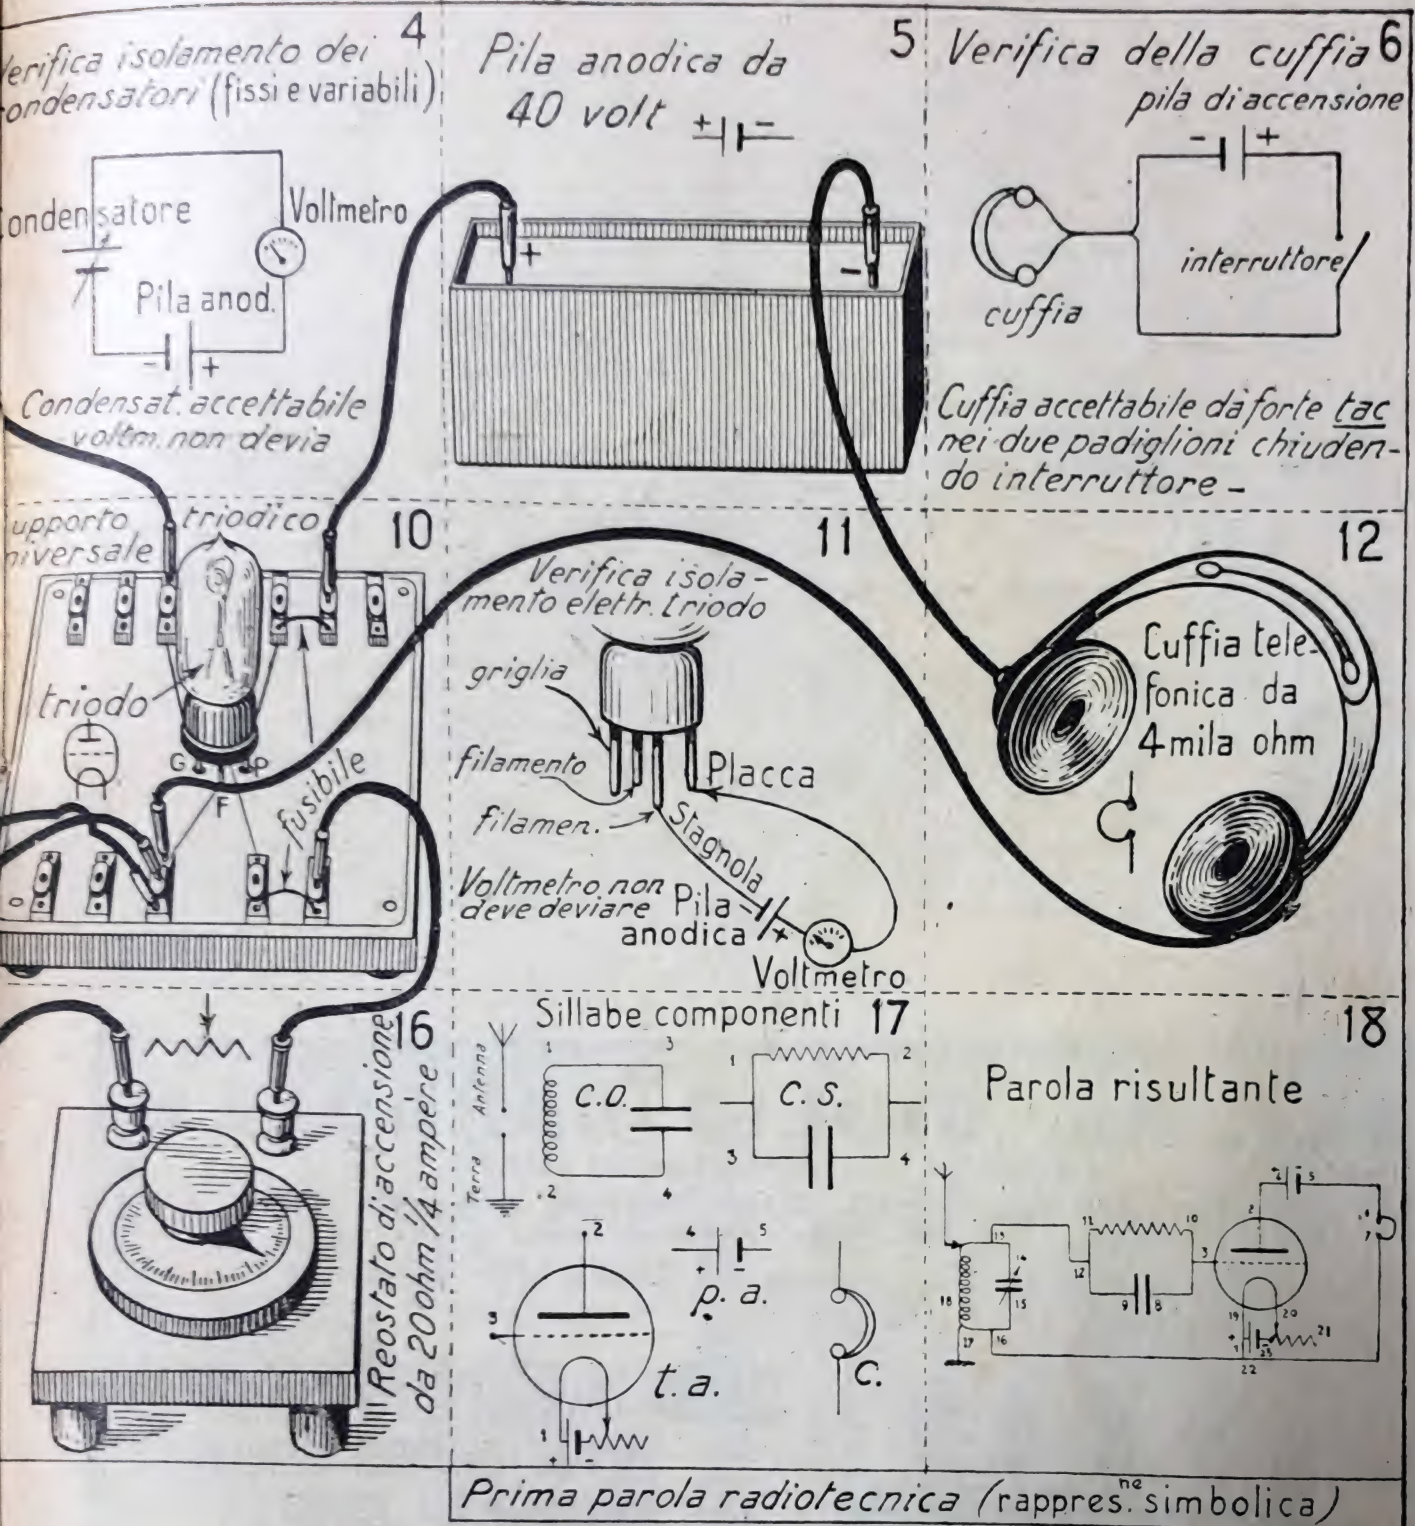 4
Verifica isolamento dei
condensatori (fissi e variabili)
Condensatore
Voltmetro
Pila anod.
- +
Condensat. accettabile
voltm. non devia
5
Pila anodica da
40 volt + -
+ -
6
Verifica della cuffia
pila di accensione
- +
interruttore
cuffia
Cuffia accettabile dà forte tac
nei due padiglioni chiuden-
do interruttore -
10
supporto triodico
universale
triodo
G P
F
fusibile
11
Verifica isola-
mento elettr. triodo
griglia
filamento
Placca
filamen.
Stagnola
Voltmetro non
deve deviare
Pila - +
anodica
Voltmetro
12
Cuffia tele-
fonica da
4 mila ohm
16
Reostato di accensione
da 20 ohm 1/4 ampère
17
Sillabe componenti
Antenna
Terra
1 3
C.O.
2 4
1 2
C. S.
3 4
2
3
t. a.
1
+ -
4 5
+ -
p. a.
C.
18
Parola risultante
4 5
2
11 10
13 3
14 12
7
18 15 9 8
17 16 19 20
21
22
Prima parola radiotecnica (rappres.ne simbolica)